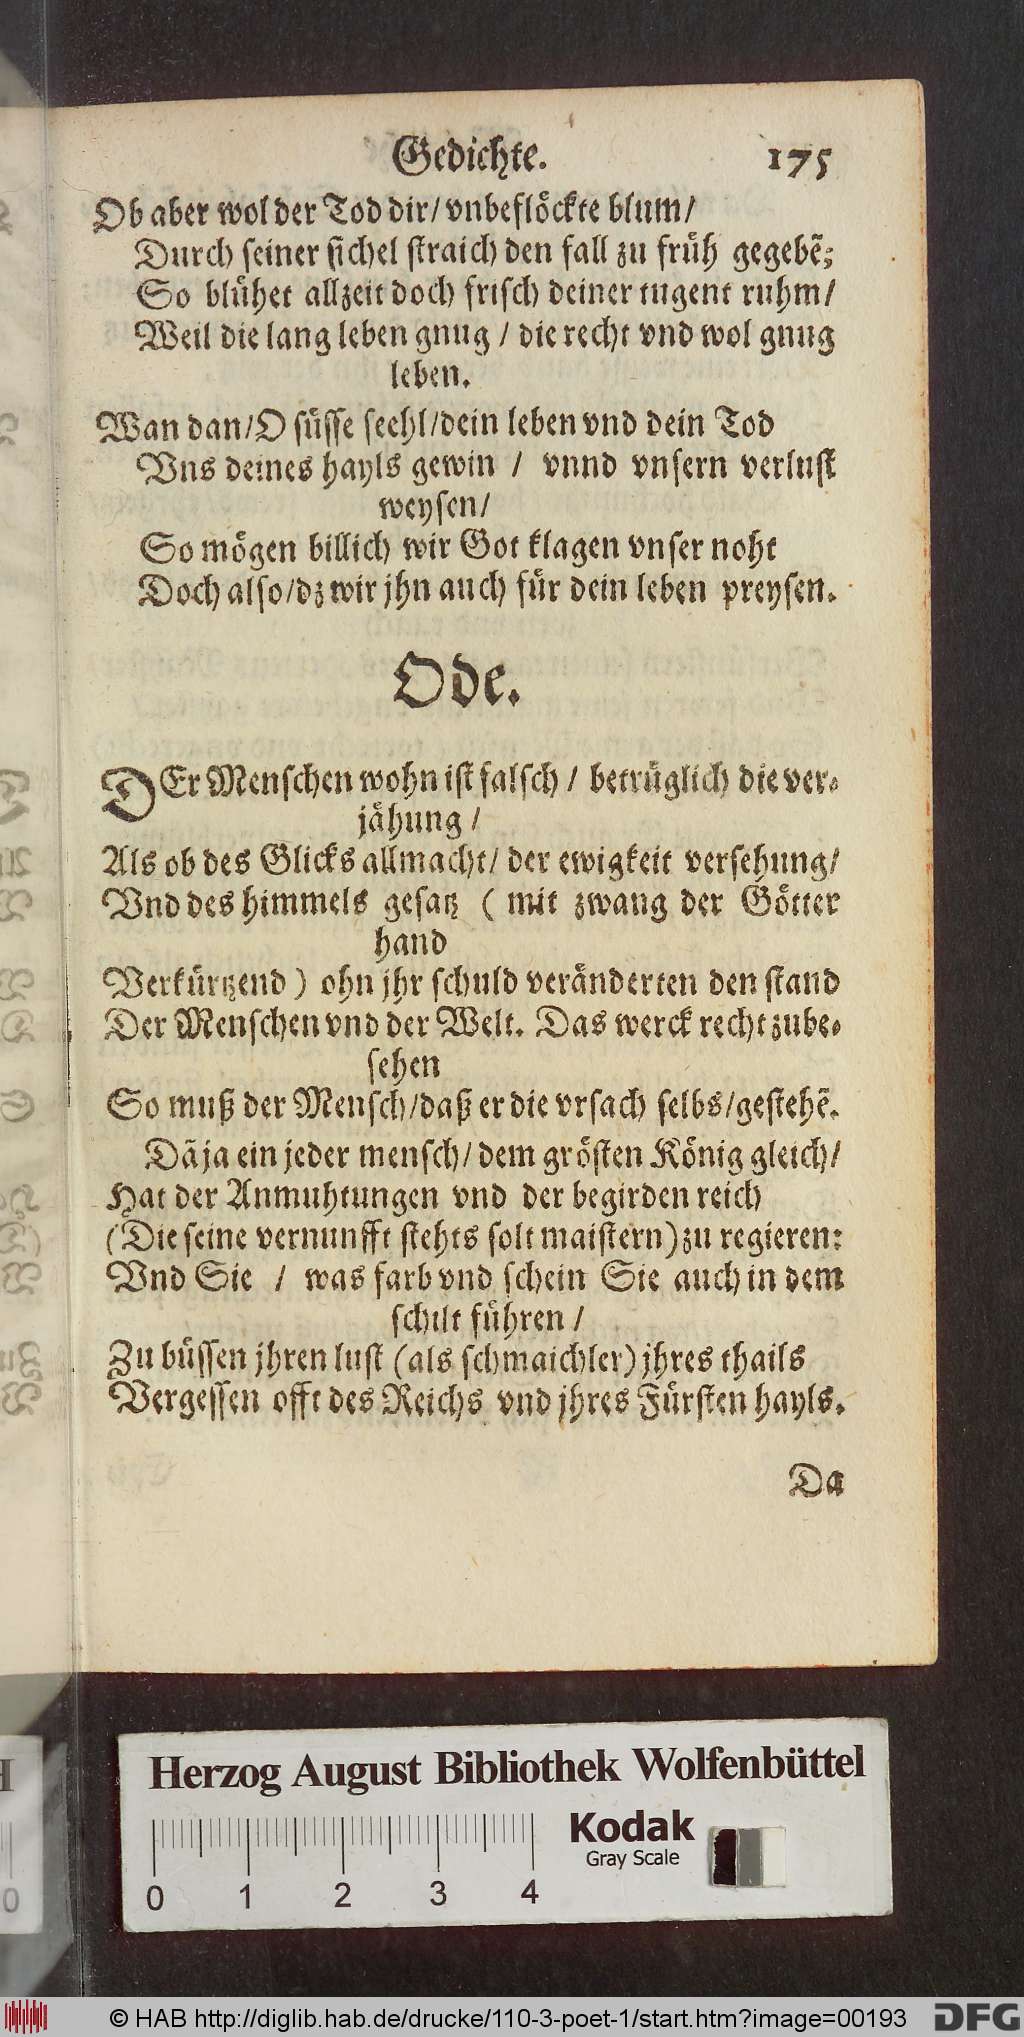 Gedichte. 175
Ob aber wol der Tod dir/ vnbeflöckte blum/
Durch seiner sichel straich den fall zu früh gegebẽ;
So blühet allzeit doch frisch deiner tugent ruhm/
Weil die lang leben gnug / die recht vnd wol gnug
leben.
Wan dan/ O süsse seehl/ dein leben vnd dein Tod
Vns deines hayls gewin / vnnd vnsern verlust
weysen/
So mögen billich wir Got klagen vnser noht
Doch also/ dz wir jhn auch für dein leben preysen.
Ode.
DEr Menschen wohn ist falsch / betrüglich die ver-
jähung /
Als ob des Glicks allmacht/ der ewigkeit versehung/
Vnd des himmels gesatz ( mit zwang der Götter
hand
Verkürtzend ) ohn jhr schuld veränderten den stand
Der Menschen vnd der Welt. Das werck recht zube-
sehen
So muß der Mensch/ daß er die vrsach selbs/ gestehẽ.
Dã ja ein jeder mensch/ dem grösten König gleich/
Hat der Anmuhtungen vnd der begirden reich
(Die seine vernunfft stehts solt maistern) zu regieren:
Vnd Sie / was farb vnd schein Sie auch in dem
schilt führen /
Zu büssen jhren lust (als schmaichler) jhres thails
Vergessen offt des Reichs vnd jhres Fürsten hayls.
Da
Herzog August Bibliothek Wolfenbüttel
Kodak
Gray Scale
0 1 2 3 4
© HAB http://diglib.hab.de/drucke/110-3-poet-1/start.htm?image=00193 DFG